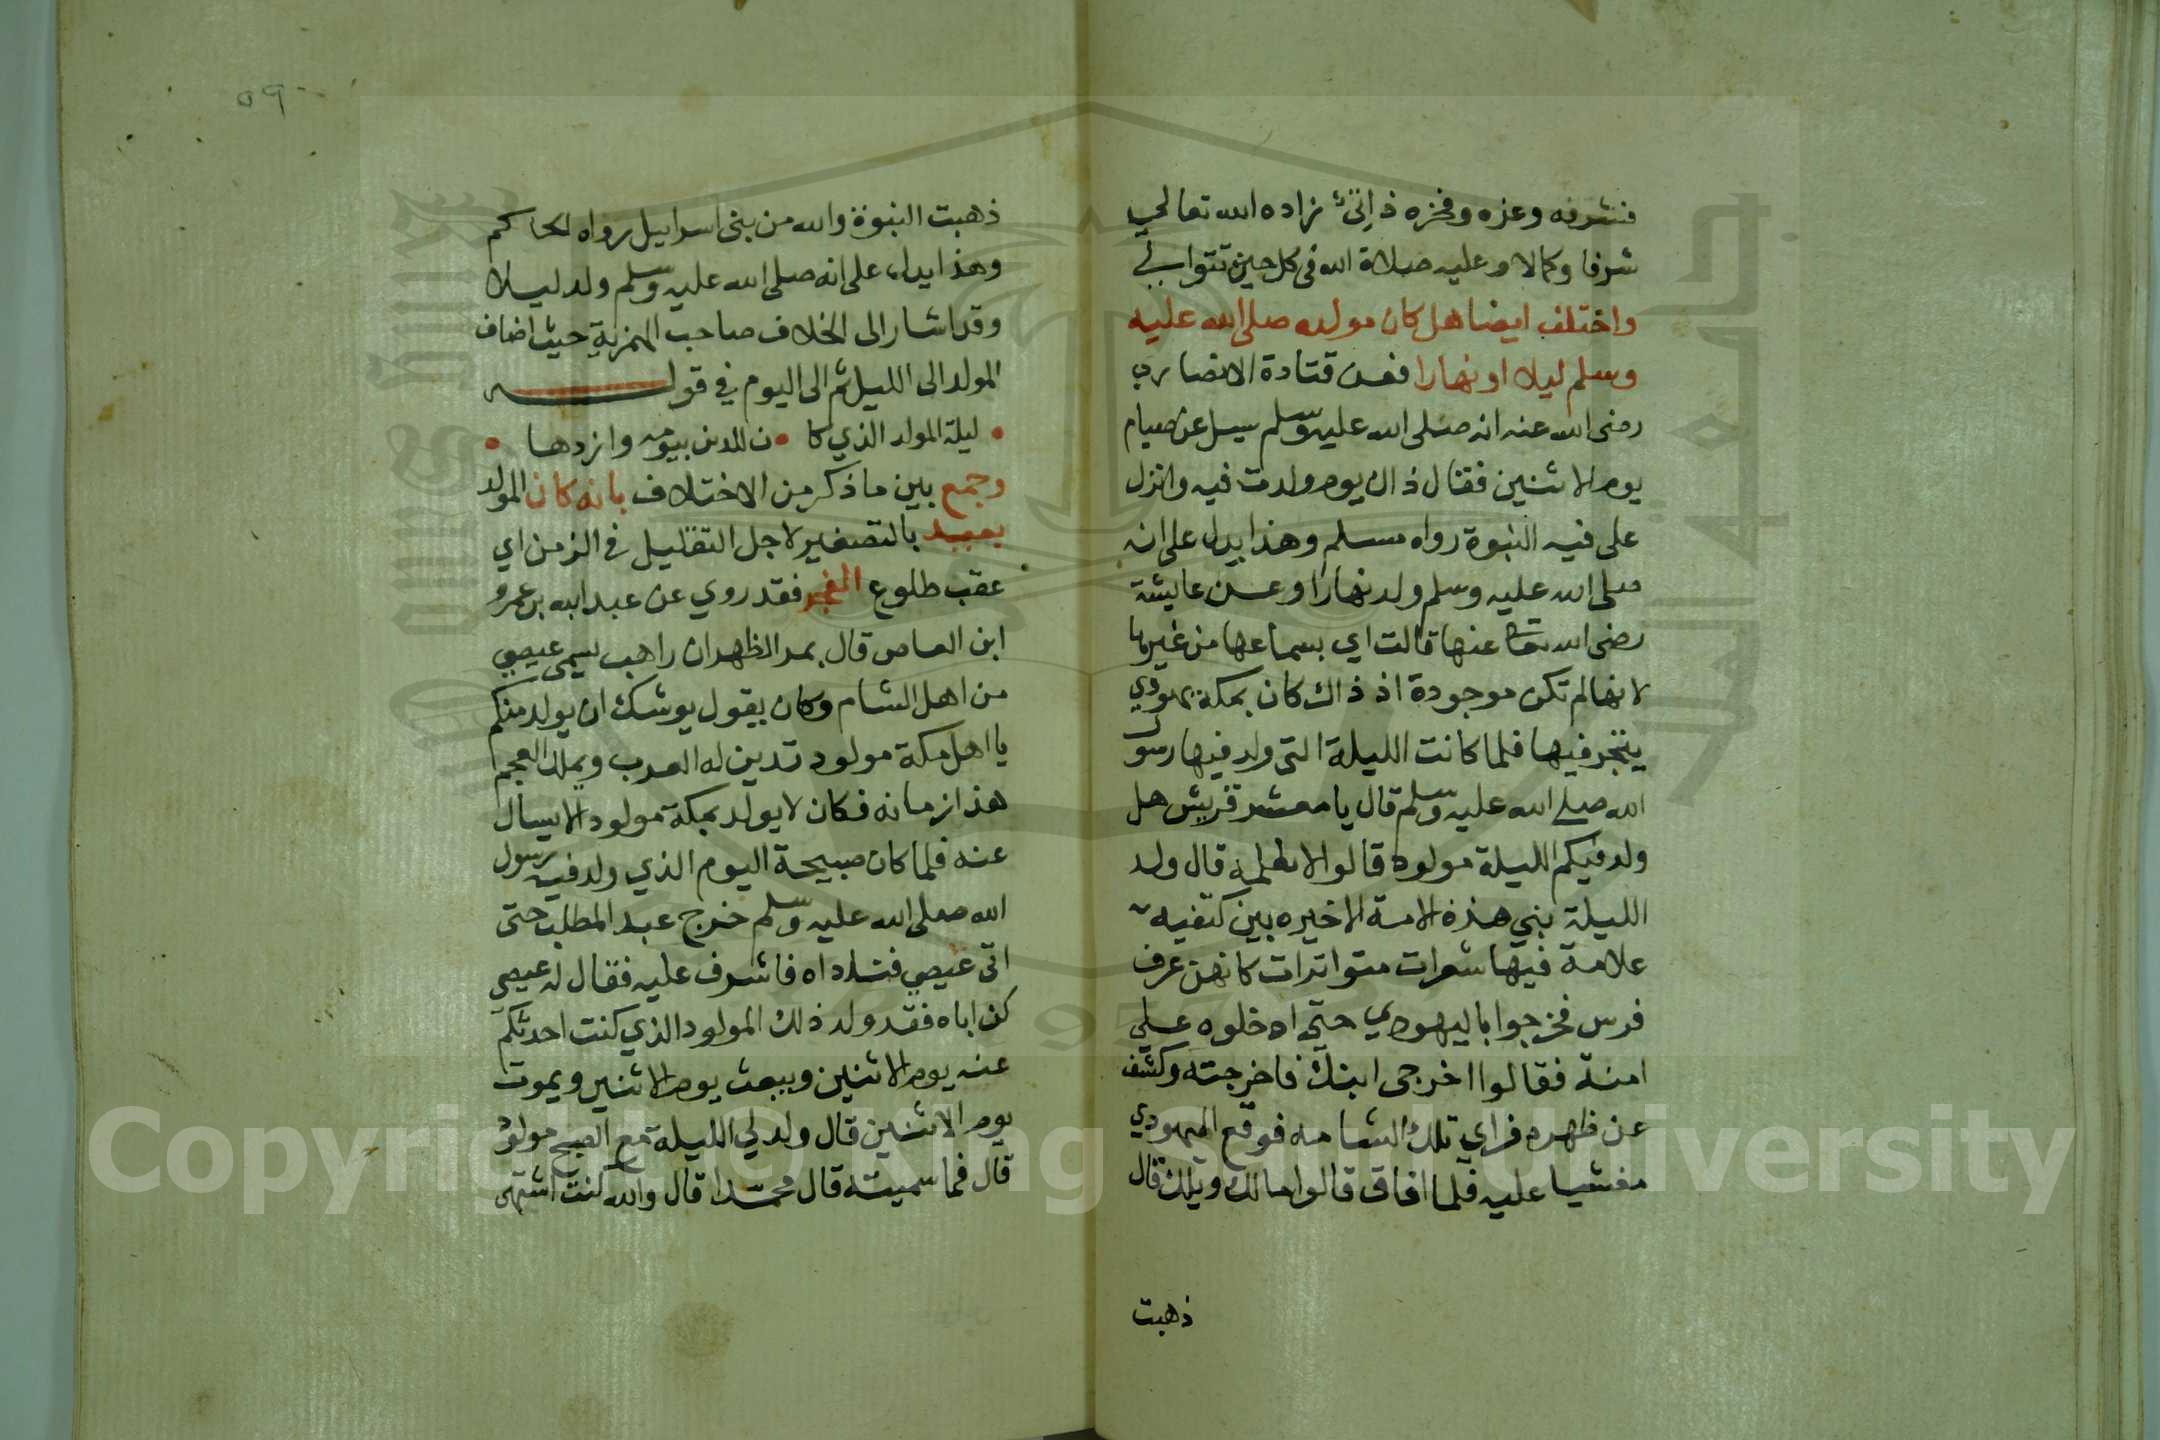 فشرفه وعزه وفخره ذاتي زاده الله تعالي
شرفا وكمالا وعليه صلاة الله في كل حين تتوالي
واختلف ايضا هل كان مولده صلى الله عليه
وسلم ليلا او نهارا فعن قتادة الانصاري
رضى الله عنه انه صلى الله عليه وسلم سيل عن صيام
يوم الاثنين فقال ذاك يوم ولدت فيه وانزل
على فيه النبوة رواه مسلم وهذا يدل على انه
صلى الله عليه وسلم ولد نهارا وعن عايشة
رضى الله تعا عنها قالت اي بسماعها من غيرها
لانها لم تكن موجودة اذ ذاك كان بمكة يهودي
يتجر فيها فلما كانت الليلة التى ولد فيها رسول
الله صلى الله عليه وسلم قال يا معشر قريش هل
ولد فيكم الليلة مولود قالوا لا نعلمه قال ولد
الليلة نبي هذه الامة الاخيره بين كتفيه
علامة فيها شعرات متواترات كانهن عرف
فرس فخرجوا باليهودي حتى ادخلوه على
امنة فقالوا اخرجى ابنك فاخرجته وكشف
عن ظهره فراي تلك الشامه فوقع اليهودي
مغشيا عليه فلما افاق قالوا مالك ويلك قال
ذهبت
٥٩
ذهبت النبوة والله من بنى اسرايل رواه الحاكم
وهذا يدل على انه صلى الله عليه وسلم ولد ليلا
وقد اشار الى الخلاف صاحب الهمزية حيث اضاف
المولد الى الليل ثم الى اليوم في قوله
ليلة المولد الذي كا ن للدين بيومه وازدها
وجمع بين ما ذكر من الاختلاف بانه كان المولد
بعيد بالتصغير لاجل التقليل في الزمن اي
عقب طلوع الفجر فقد روي عن عبد الله بن عمرو
ابن العاص قال بمر الظهران راهب يسمى عيصي
من اهل الشام وكان يقول يوشك ان يولد منكم
يا اهل مكة مولود تدين له العرب ويملك العجم
هذا زمانه فكان لا يولد بمكة مولود الا يسال
عنه فلما كان صبيحة اليوم الذي ولد فيه رسول
الله صلى الله عليه وسلم خرج عبد المطلب حتى
اتى عيصي فناداه فاشرف عليه فقال له عيصي
كن اباه فقد ولد ذلك المولود الذي كنت احدثكم
عنه يوم الاثنين ويبعث يوم الاثنين ويموت
يوم الاثنين قال ولد لي الليلة مع الصبح مولود
قال فما سميته قال محمدا قال والله كنت اشتهى
Copyright © King Saud University